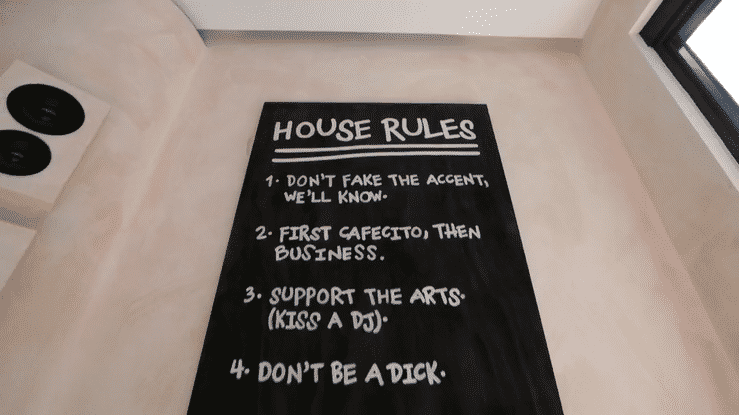 HOUSE RULES
1. DON'T FAKE THE ACCENT,
WE'LL KNOW.
2. FIRST CAFECITO, THEN
BUSINESS.
3. SUPPORT THE ARTS.
(KISS A DJ).
4. DON'T BE A DICK.